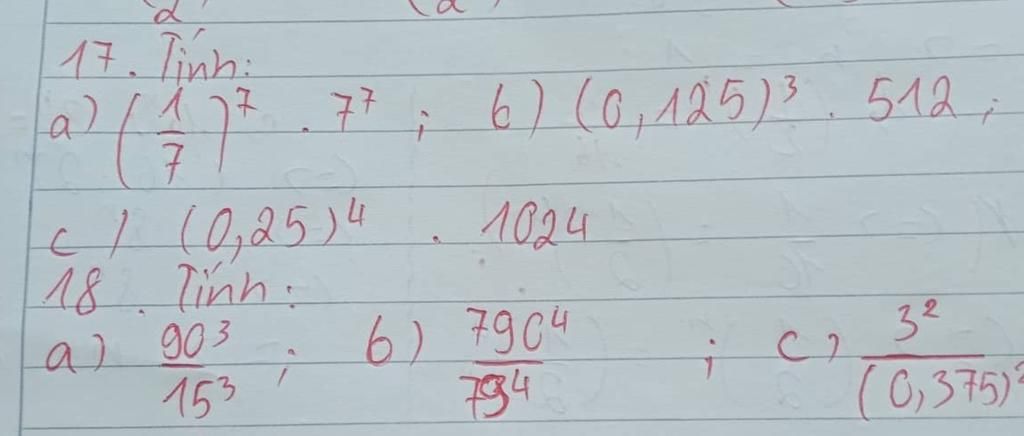 17. Tính:
a) (1/7)^7 . 7^7 ; b) (0,125)^3 . 512 ;
c) (0,25)^4 . 1024
18. Tính:
a) 90^3/15^3 ; b) 790^4/79^4 ; c) 3^2/(0,375)^2